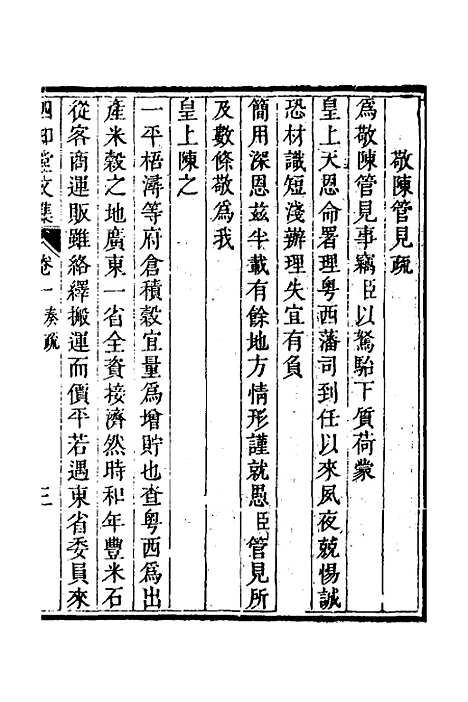 敬陳管見疏
爲敬陳管見事竊臣以駑駘下質荷蒙
皇上天恩命署理粵西藩司到任以來夙夜兢惕誠
恐材識短淺辦理失宜有負
簡用深恩兹半載有餘地方情形謹就愚臣管見所
及數條敬爲我
皇上陳之
一平梧潯等府倉積穀宜量爲增貯也查粵西爲出
產米穀之地廣東一省全資接濟然時和年豐米石
從客商運販雖絡繹搬運而價平若遇東省委員來
四知堂文集 卷一奏疏 三